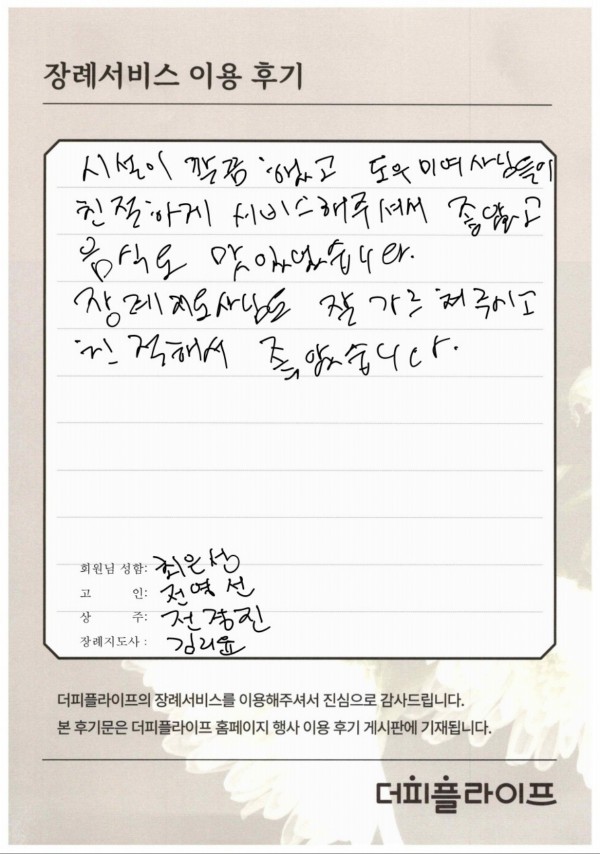 장례서비스 이용 후기
시설이 깔끔하였고 도우미여사님들이
친절하게 서비스해주셔서 좋았고
음식도 맛있었습니다.
장례지도사님도 잘 가르쳐주시고
친절해서 좋았습니다.
회원님 성함: 최은성
고 인: 전영선
상 주: 전경진
장례지도사 : 김리윤
더피플라이프의 장례서비스를 이용해주셔서 진심으로 감사드립니다.
본 후기문은 더피플라이프 홈페이지 행사 이용 후기 게시판에 기재됩니다.
더피플라이프